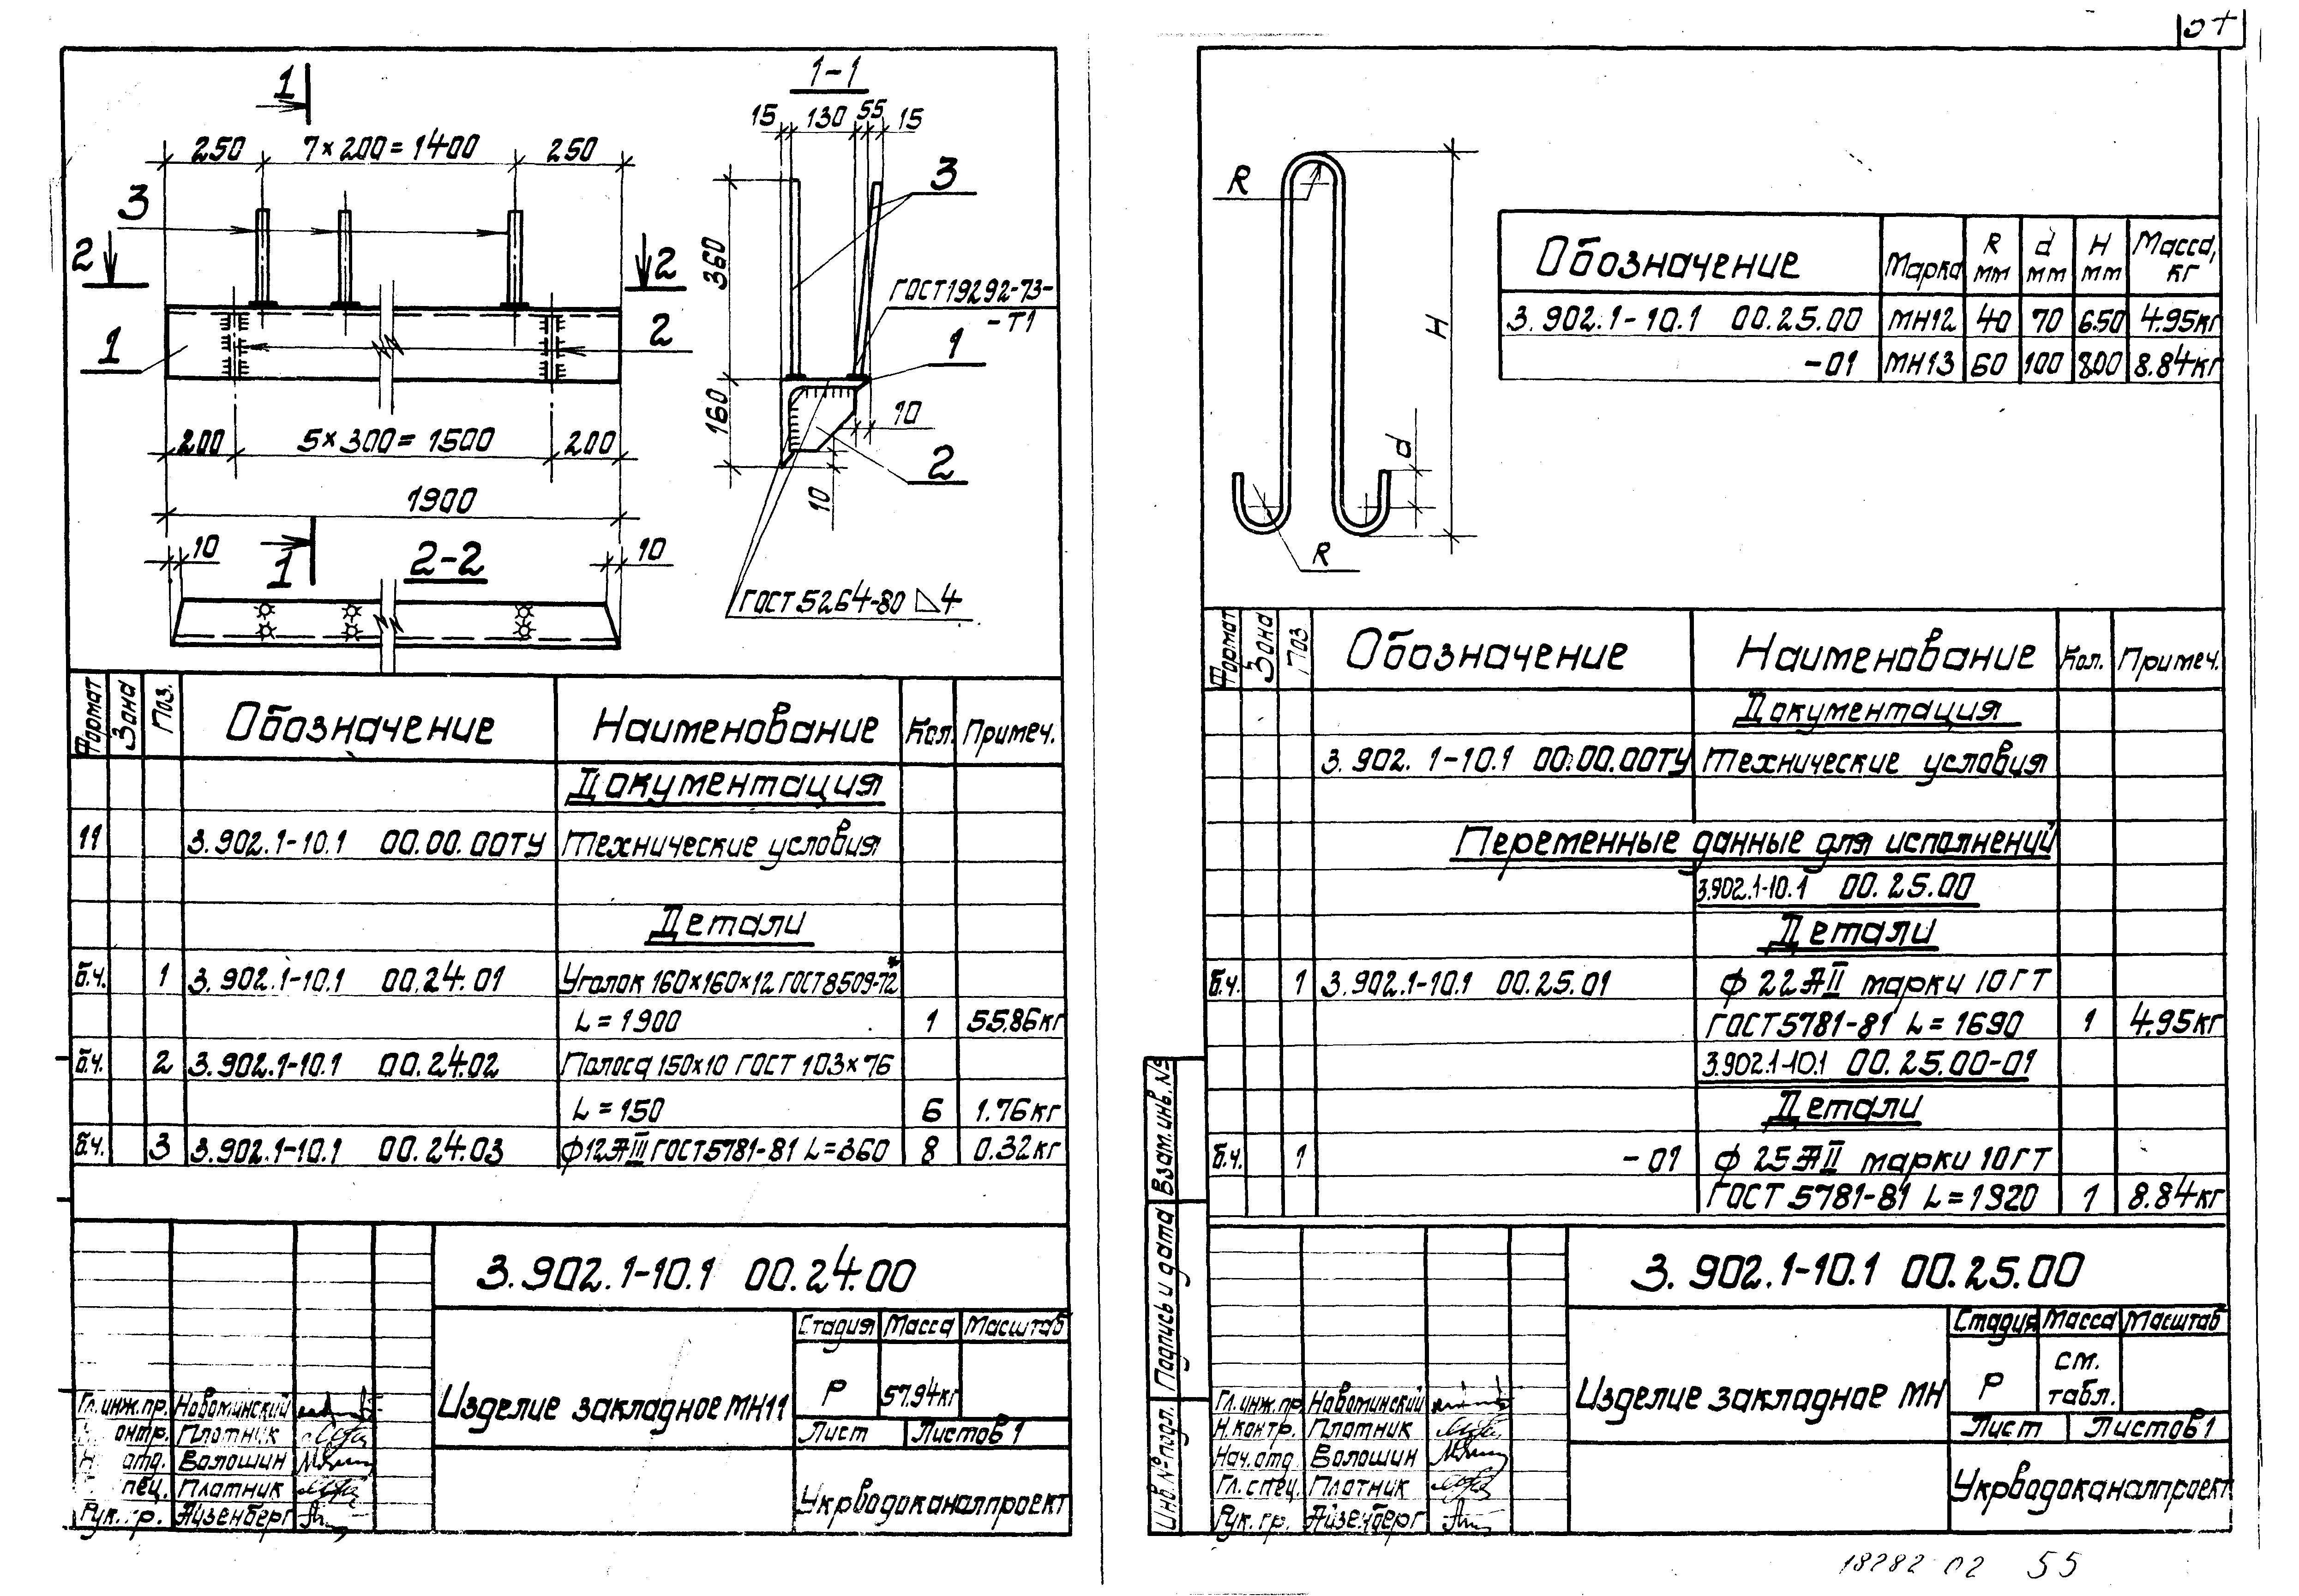 1
1-1
15 130 55 15
250 7×200=1400 250
3
3
2 2
360
ГОСТ19292-73-
-Т1
1
1
2
160
10
2
10
200 5×300=1500 200
1900
10 1 2-2 10
ГОСТ5264-80 ⊿4
Формат Зона Поз. Обозначение Наименование Кол. Примеч.
Документация
11 3.902.1-10.1 00.00.00ТУ Технические условия
Детали
б.ч. 1 3.902.1-10.1 00.24.01 Уголок 160×160×12 ГОСТ8509-72*
L=1900 1 55.86кг
б.ч. 2 3.902.1-10.1 00.24.02 Полоса 150×10 ГОСТ 103×76
L=150 6 1.76кг
б.ч. 3 3.902.1-10.1 00.24.03 ф12АIII ГОСТ5781-81 L=360 8 0.32кг
3.902.1-10.1 00.24.00
Стадия Масса Масштаб
Изделие закладное МН11 Р 57.94кг
Лист Листов 1
Гл.инж.пр. Новоминский
онтр. Плотник
Н отд. Волошин
пец. Плотник
Рук. гр. Айзенберг
Укрводоканалпроект
R
H
d
R
Обозначение Марка R мм d мм H мм Масса, кг
3.902.1-10.1 00.25.00 МН12 40 70 650 4.95кг
-01 МН13 60 100 800 8.84кг
Формат Зона Поз Обозначение Наименование Кол. Примеч.
Документация
3.902.1-10.1 00.00.00ТУ Технические условия
Переменные данные для исполнений
3.902.1-10.1 00.25.00
Детали
б.ч. 1 3.902.1-10.1 00.25.01 ф 22АII марки 10ГТ
ГОСТ5781-81 L=1690 1 4.95кг
3.902.1-10.1 00.25.00-01
Детали
б.ч. 1 -01 ф 25АII марки 10ГТ
ГОСТ 5781-81 L=1920 1 8.84кг
3.902.1-10.1 00.25.00
Стадия Масса Масштаб
Изделие закладное МН Р см. табл.
Лист Листов 1
Гл.инж.пр Новоминский
Н.контр. Плотник
Нач.отд Волошин
Гл.спец. Плотник
Рук.гр. Айзенберг
Укрводоканалпроект
Взам.инв.№
Подпись и дата
Инв.№подл.
18282 02 55